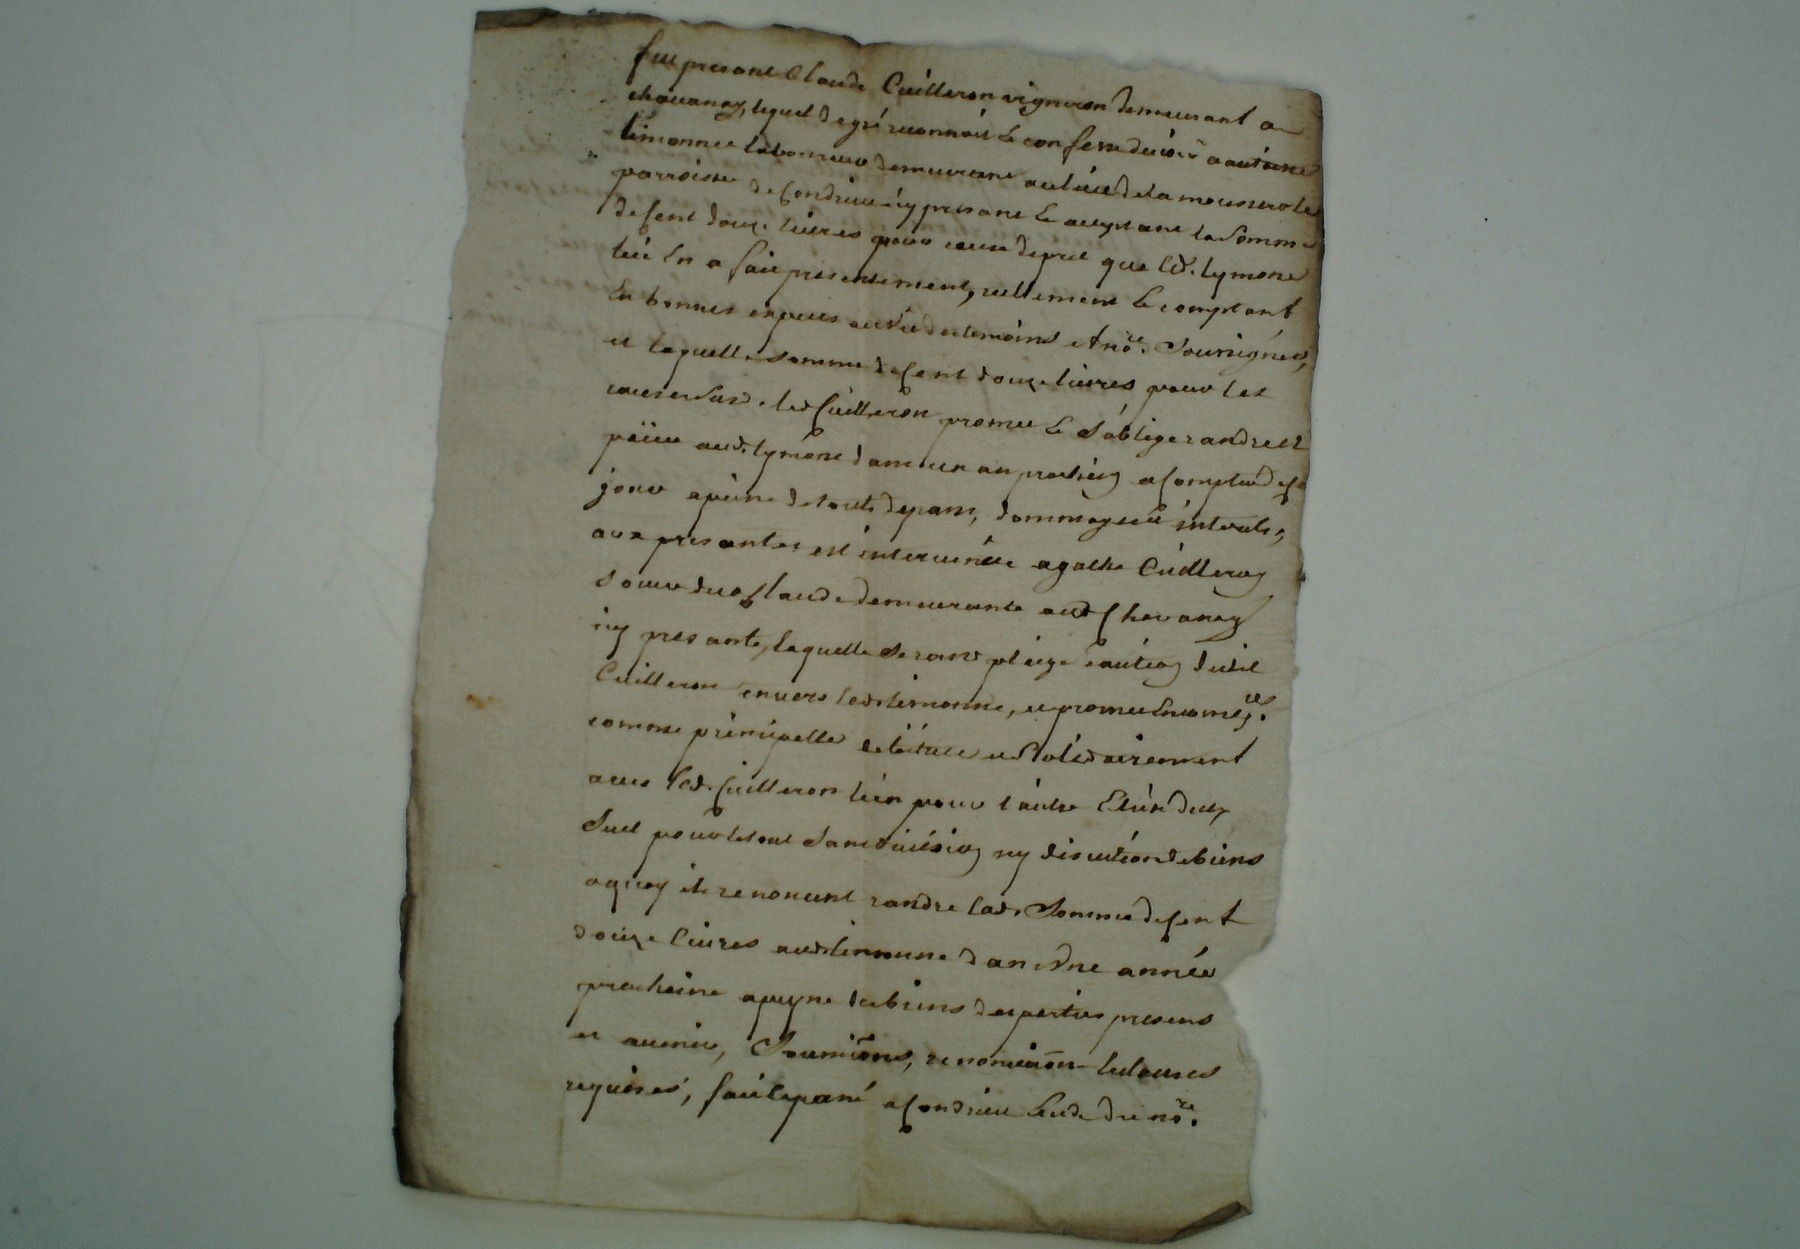 fut presant Claude Cuilleron vigneron demeurant a
chavanay, lequel de gré reconnoit & confesse devoir a antoine
limonne laboureur demeurant au lieu de la mousserole
parroisse de Condrieu icy presant & acceptant la somme
de cent douze livres pour cause de prest que led. lymone
luy en a fait presentement, reellement & comptant
En bonnes especes au vû des temoins et no.re soussignés,
et laquelle somme de cent douze livres pour les
causes susd. led Cuilleron promet & s'oblige randre et
païer aud. lymone dans un an prochain a compter de ce
jour a peine de touts depans, dommages et interests,
aux presantes est intervenüe agathe Cuilleron
soeur dud Claude demeurante aud Chavanay
icy presante, laquelle se rand pleige caution dudit
Cuilleron envers led limonne, et promet
comme principalle debitrice et solidairement
avec led. Cuilleron l'un pour l'autre & l'un d'eux
seul pour le tout sans division ny discution de biens
a quoy ils renoncent randre lad. somme de cent
douze livres aud limonne dans une année
prochaine a peyne de biens des parties presens
et avenir, soumissions, renonciations & clauses
requises, fait & passé a Condrieu Etude du no.re